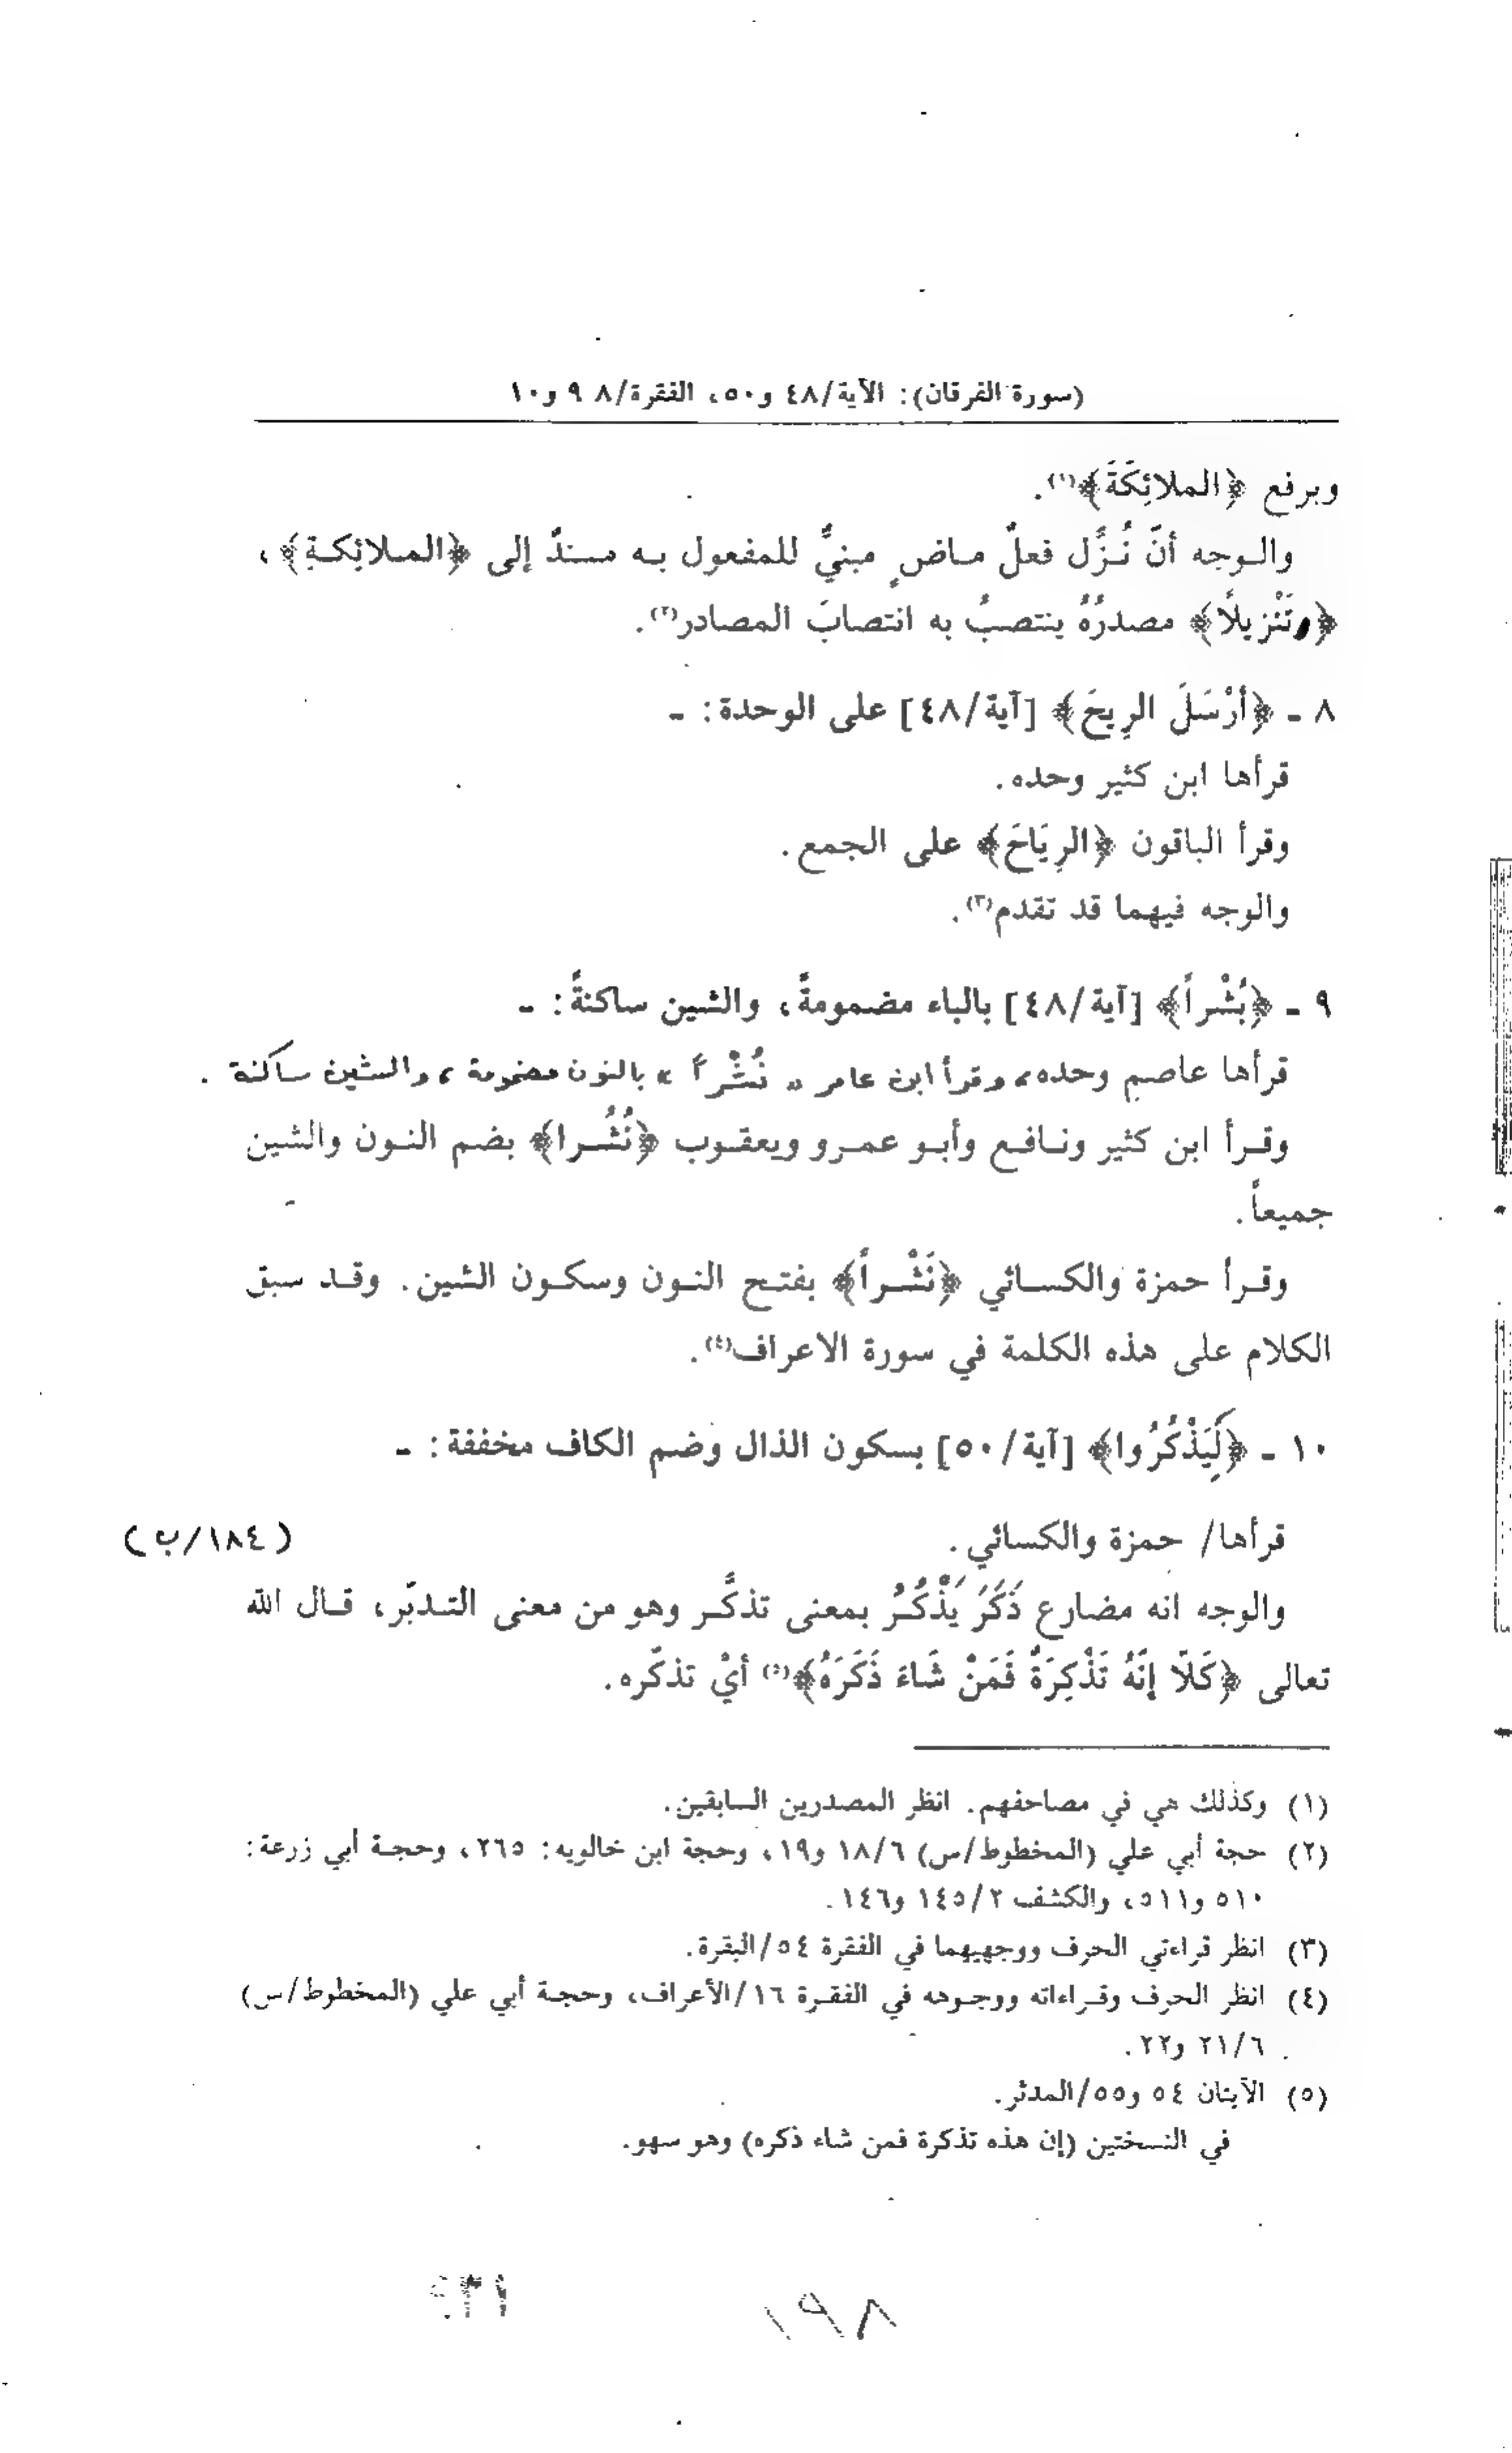 (سورة الفرقان): الآية/٤٨ و٥٠، الفقرة/٨ ٩ و١٠
وبرفع ﴿الملائِكَةَ﴾(١).
والوجه أنّ نُزِّل فعلٌ ماضٍ مبنيٌّ للمفعول به مسندٌ إلى ﴿الملائِكةِ﴾،
﴿وتَنْزِيلًا﴾ مصدرُهُ ينتصبُ به انتصابَ المصادر(٢).
٨ ـ ﴿أَرْسَلَ الرِيحَ﴾ [آية/٤٨] على الوحدة: ـ
قرأها ابن كثير وحده.
وقرأ الباقون ﴿الرِيَاحَ﴾ على الجمع.
والوجه فيهما قد تقدم(٣).
٩ ـ ﴿بُشْراً﴾ [آية/٤٨] بالباء مضمومةً، والشين ساكنةً: ـ
قرأها عاصم وحده، وقرأ ابن عامر « نُشْراً » بالنون مضمومة، والشين ساكنة.
وقرأ ابن كثير ونافع وأبو عمرو ويعقوب ﴿نُشُرا﴾ بضم النون والشين
جميعاً.
وقرأ حمزة والكسائي ﴿نَشْراً﴾ بفتح النون وسكون الشين. وقد سبق
الكلام على هذه الكلمة في سورة الاعراف(٤).
١٠ ـ ﴿لِيَذْكُرُوا﴾ [آية/٥٠] بسكون الذال وضم الكاف مخففة: ـ
قرأها/ حمزة والكسائي. (١٨٤/ب)
والوجه انه مضارع ذَكَرَ يَذْكُرُ بمعنى تذكَّر وهو من معنى التدبّر، قال الله
تعالى ﴿كَلّا إنّهُ تَذْكِرَةٌ فَمَنْ شَاءَ ذَكَرَهُ﴾(٥) أيْ تذكّره.
(١) وكذلك هي في مصاحفهم. انظر المصدرين السابقين.
(٢) حجة أبي علي (المخطوط/س) ١٨/٦ و١٩، وحجة ابن خالويه: ٢٦٥، وحجة أبي زرعة:
٥١٠ و٥١١، والكشف ١٤٥/٢ و١٤٦.
(٣) انظر قراءتي الحرف ووجهيهما في الفقرة ٥٤/البقرة.
(٤) انظر الحرف وقراءاته ووجوهه في الفقرة ١٦/الأعراف، وحجة أبي علي (المخطوط/س)
٢١/٦ و٢٢.
(٥) الآيتان ٥٤ و٥٥/المدثر.
في النسختين (إن هذه تذكرة فمن شاء ذكره) وهو سهو.
١٩٨